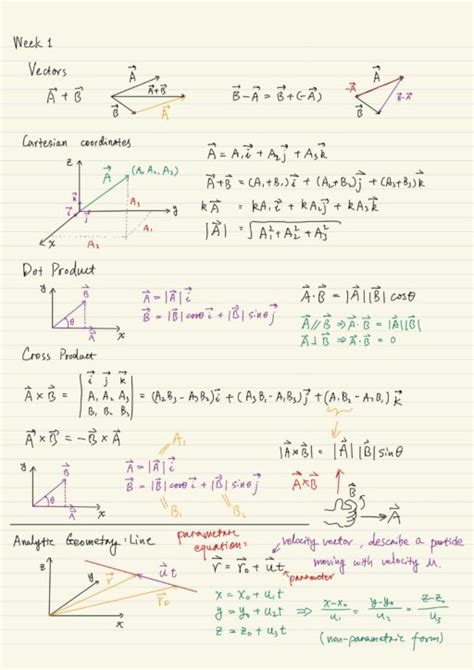 Week 1
Vectors
A⃗ + B⃗
A⃗
A⃗+B⃗
B⃗
A⃗
B⃗ - A⃗ = B⃗ + (-A⃗)
-A⃗
A⃗
B⃗
B⃗-A⃗
Cartesian coordinates
z
A⃗
(A₁, A₂, A₃)
k⃗
i⃗
j⃗
A₃
y
A₁
A₂
x
A⃗ = A₁i⃗ + A₂j⃗ + A₃k⃗
A⃗+B⃗ = (A₁+B₁)i⃗ + (A₂+B₂)j⃗ + (A₃+B₃)k⃗
kA⃗ = kA₁i⃗ + kA₂j⃗ + kA₃k⃗
|A⃗| = √(A₁² + A₂² + A₃²)
Dot Product
y
B⃗
θ
A⃗
x
A⃗ = |A⃗| i⃗
B⃗ = |B⃗| cosθ i⃗ + |B⃗| sinθ j⃗
A⃗·B⃗ = |A⃗||B⃗| cosθ
A⃗ // B⃗ ⇒ A⃗·B⃗ = |A⃗||B⃗|
A⃗ ⊥ B⃗ ⇒ A⃗·B⃗ = 0
Cross Product
i⃗ j⃗ k⃗
A⃗ × B⃗ = | A₁ A₂ A₃ | = (A₂B₃ - A₃B₂)i⃗ + (A₃B₁ - A₁B₃)j⃗ + (A₁B₂ - A₂B₁)k⃗
B₁ B₂ B₃
A⃗ × B⃗ = -B⃗ × A⃗
A₁
|A⃗×B⃗| = |A⃗||B⃗| sinθ
y
B⃗
θ
A⃗
x
A⃗ = |A⃗| i⃗
B⃗ = |B⃗| cosθ i⃗ + |B⃗| sinθ j⃗
B₁
B₂
A⃗×B⃗
B⃗
A⃗
Analytic Geometry: Line
parametric
equation:
velocity vector, describe a particle
moving with velocity u.
r⃗ = r⃗₀ + u⃗t
parameter
z
y
r⃗
u⃗t
r⃗₀
x
x = x₀ + u₁t
y = y₀ + u₂t ⇒ (x-x₀)/u₁ = (y-y₀)/u₂ = (z-z₀)/u₃
z = z₀ + u₃t
(non-parametric form)